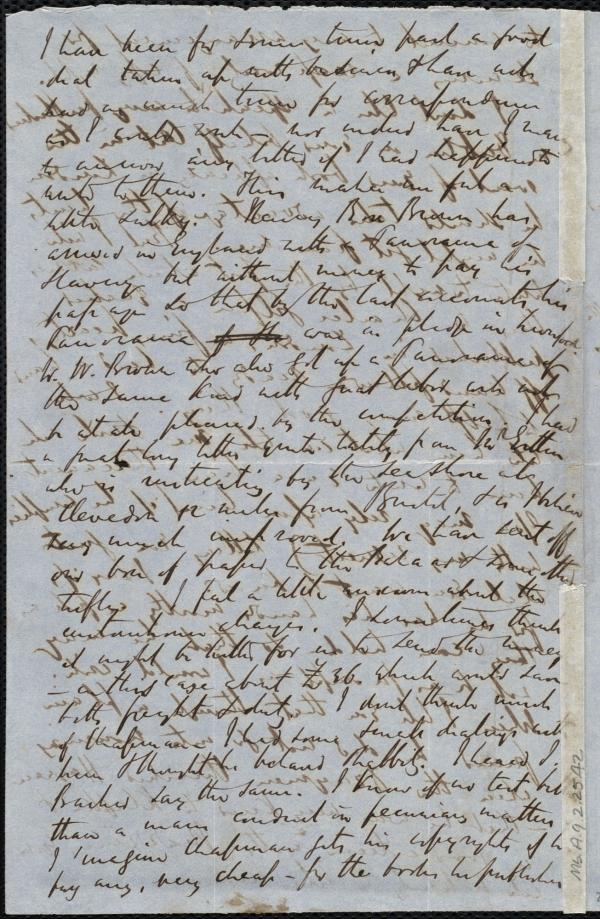 I have been for some time past a good
deal taken up with business & have not
had as much time for correspondence
as I could wish – nor indeed have I may
to answer any letters if I had happened to
write to them. This makes me feel a
little sulky. Henry Box Brown has
arrived in England with a Panorama of
Slavery but without money to pay his
passage so that by the last accounts his
Panorama was in pledge in Liverpool.
W. W. Brown who also got up a Panorama of
the same kind with great labor will not
be at all pleased by the competition. I had
a great long letter quite lately from Dr Estlin
who is rusticating by the sea shore at
Clevedon 12 miles from Bristol, & is I believe
very much improved. We have sent off
our box of paper to the Bazaar & some other
trifles. I feel a little anxious about the
custom house charges. I sometimes think
it might be better for us to send the money
– in this case about £36 which would save
both freight & duty. I don't think much
of Chapman. I had some small dealings with
him & thought he behaved shabbily. I heard J.
Barker say the same. I know of no test better
than a man's conduct in pecuniary matters
I imagine Chapman gets his copyrights if he
pay any, very cheap – for the books he publishes
Ms.A.9.2.25.42